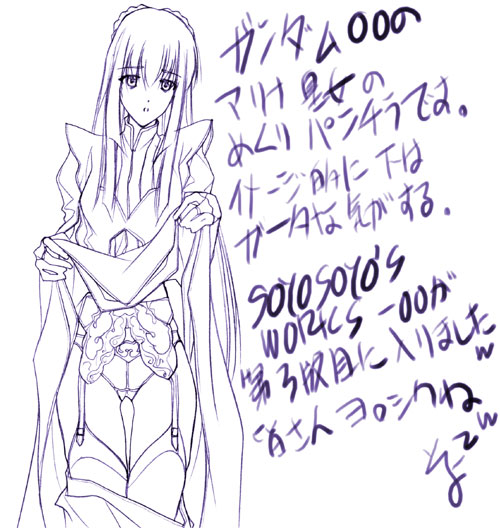 ガンダム00の
マリナ皇女の
めくりパンチラです。
イメージ的に下は
ガータな気がする。
SOYOSOYO'S
WORKS -00が
第3版目に入りましたw
皆さんヨロシクねw